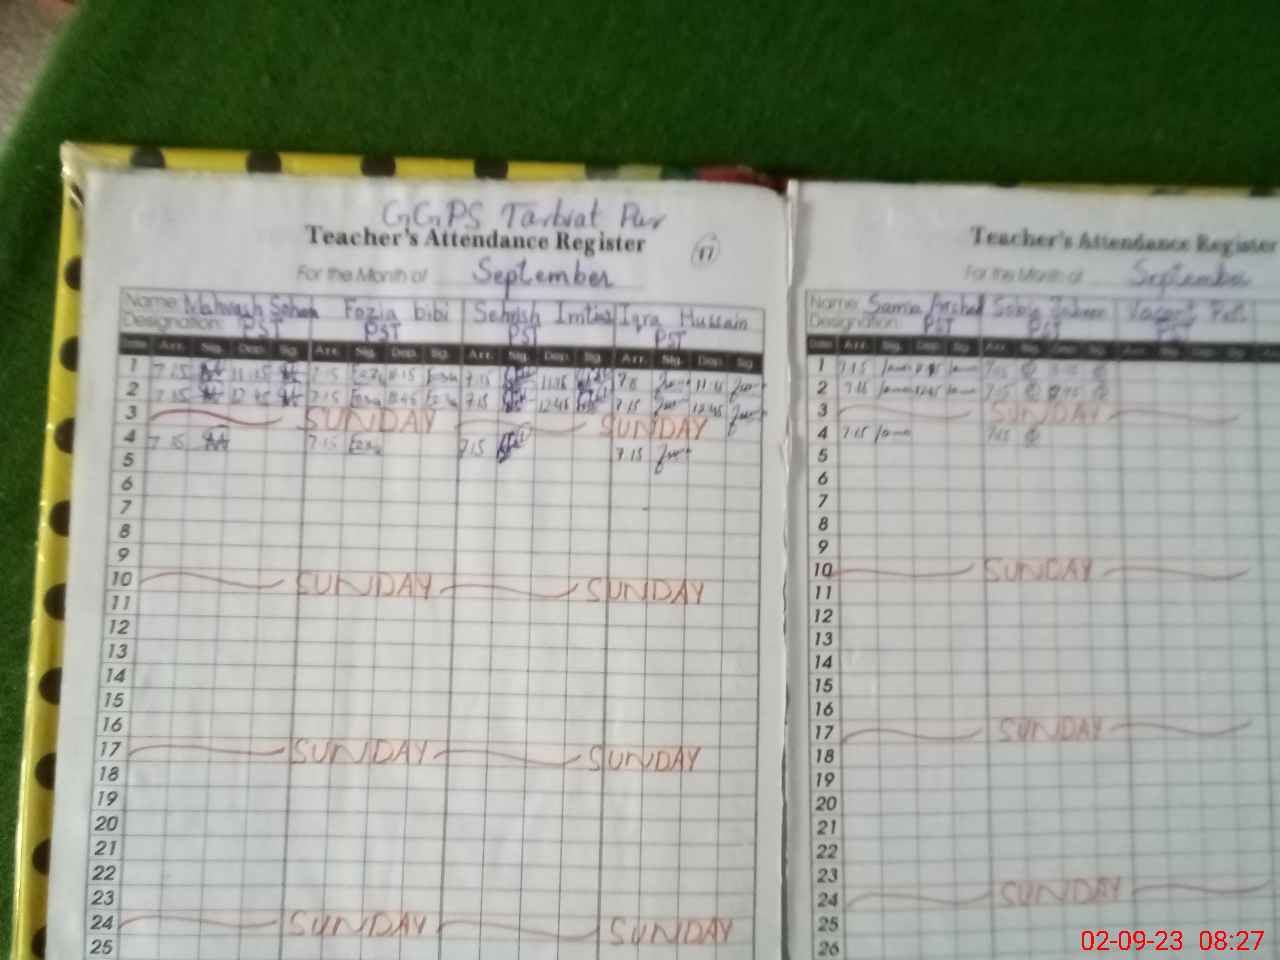 GGPS Tarbiat Pur
Teacher's Attendance Register
17
For the Month of September
Name: Mahwash Fozia bibi Sehrish Imtiaz Iqra Hussain
Designation: PST PST PST PST
Date Arr. Sig. Dep. Sig. Arr. Sig. Dep. Sig. Arr. Sig. Dep. Sig. Arr. Sig. Dep. Sig.
1 7.15 11.15 7.15 11.15 7.15 11.15 11.15
2 7.15 12.45 7.15 12.45 7.15 12.45 7.15 12.45
3 SUNDAY SUNDAY
4 7.15 7.15 7.15
5 7.15
6
7
8
9
10 SUNDAY SUNDAY
11
12
13
14
15
16
17 SUNDAY SUNDAY
18
19
20
21
22
23
24 SUNDAY SUNDAY
25
Teacher's Attendance Register
For the Month of September
Name: Samia Arshad Sobia
Designation: PST PST PST
Date Arr. Sig. Dep. Sig. Arr. Sig. Dep. Sig. Arr. Sig. Dep. Sig.
1 7.15 7.15
2 7.15 12.45 7.15 12.45
3 SUNDAY
4 7.15 7.15
5
6
7
8
9
10 SUNDAY
11
12
13
14
15
16
17 SUNDAY
18
19
20
21
22
23
24 SUNDAY
25
26
02-09-23 08:27